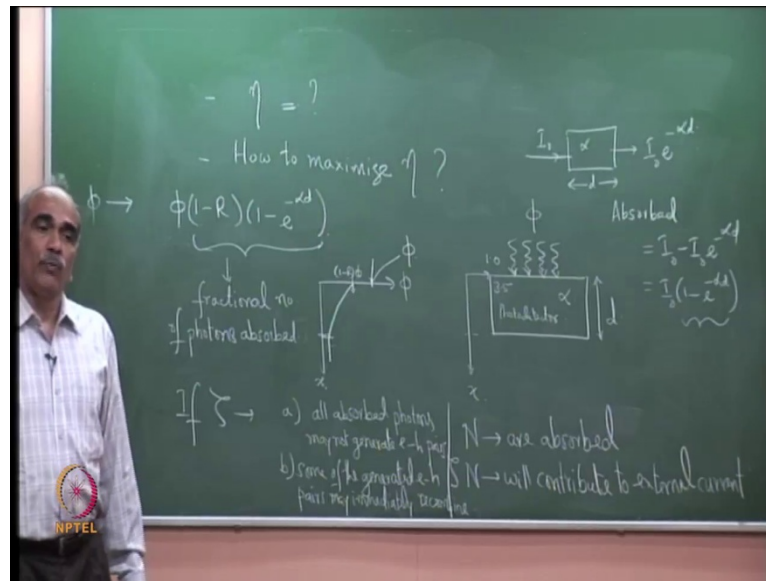 - η = ?
- How to maximise η ?
ϕ → ϕ(1-R)(1-e^-αd)
fractional no
of photons absorbed
(1-R)ϕ
ϕ
ϕ
x
I₀ → α → I₀ e^-αd
d
ϕ
1.0
3.5
α
Photodetector
d
x
Absorbed
= I₀ - I₀ e^-αd
= I₀ (1-e^-αd)
If ζ →
a) all absorbed photons
may not generate e-h pairs
b) some of the generated e-h
pairs may immediately recombine
N → are absorbed
ζ N → will contribute to external current
NPTEL